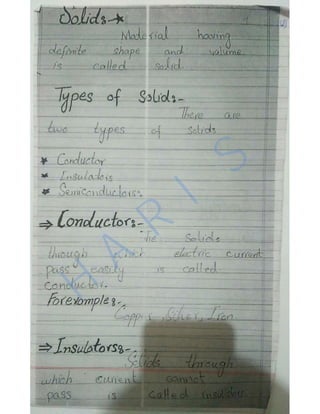 Solids:-
Material having
definite shape and volume
is called solid.
Types of Solids:-
There are
two types of solids
* Conductor
* Insulators
* Semiconductors:
⇒ Conductors:-
The Solids
through which electric current
pass easily is called
conductor.
Forexample:-
Copper, Silver, Iron
⇒ Insulators:-
Solids through
which current cannot
pass is called insulators
HARIS